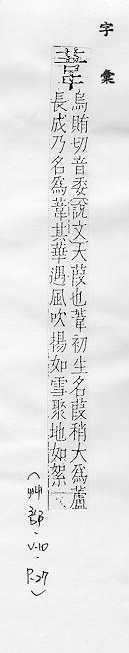 字彙
葦
烏賄切音委說文大葭也葦初生名葭稍大為蘆
長成乃名為葦其華遇風吹揚如雪聚地如絮
(艸部-V.10-P.27)